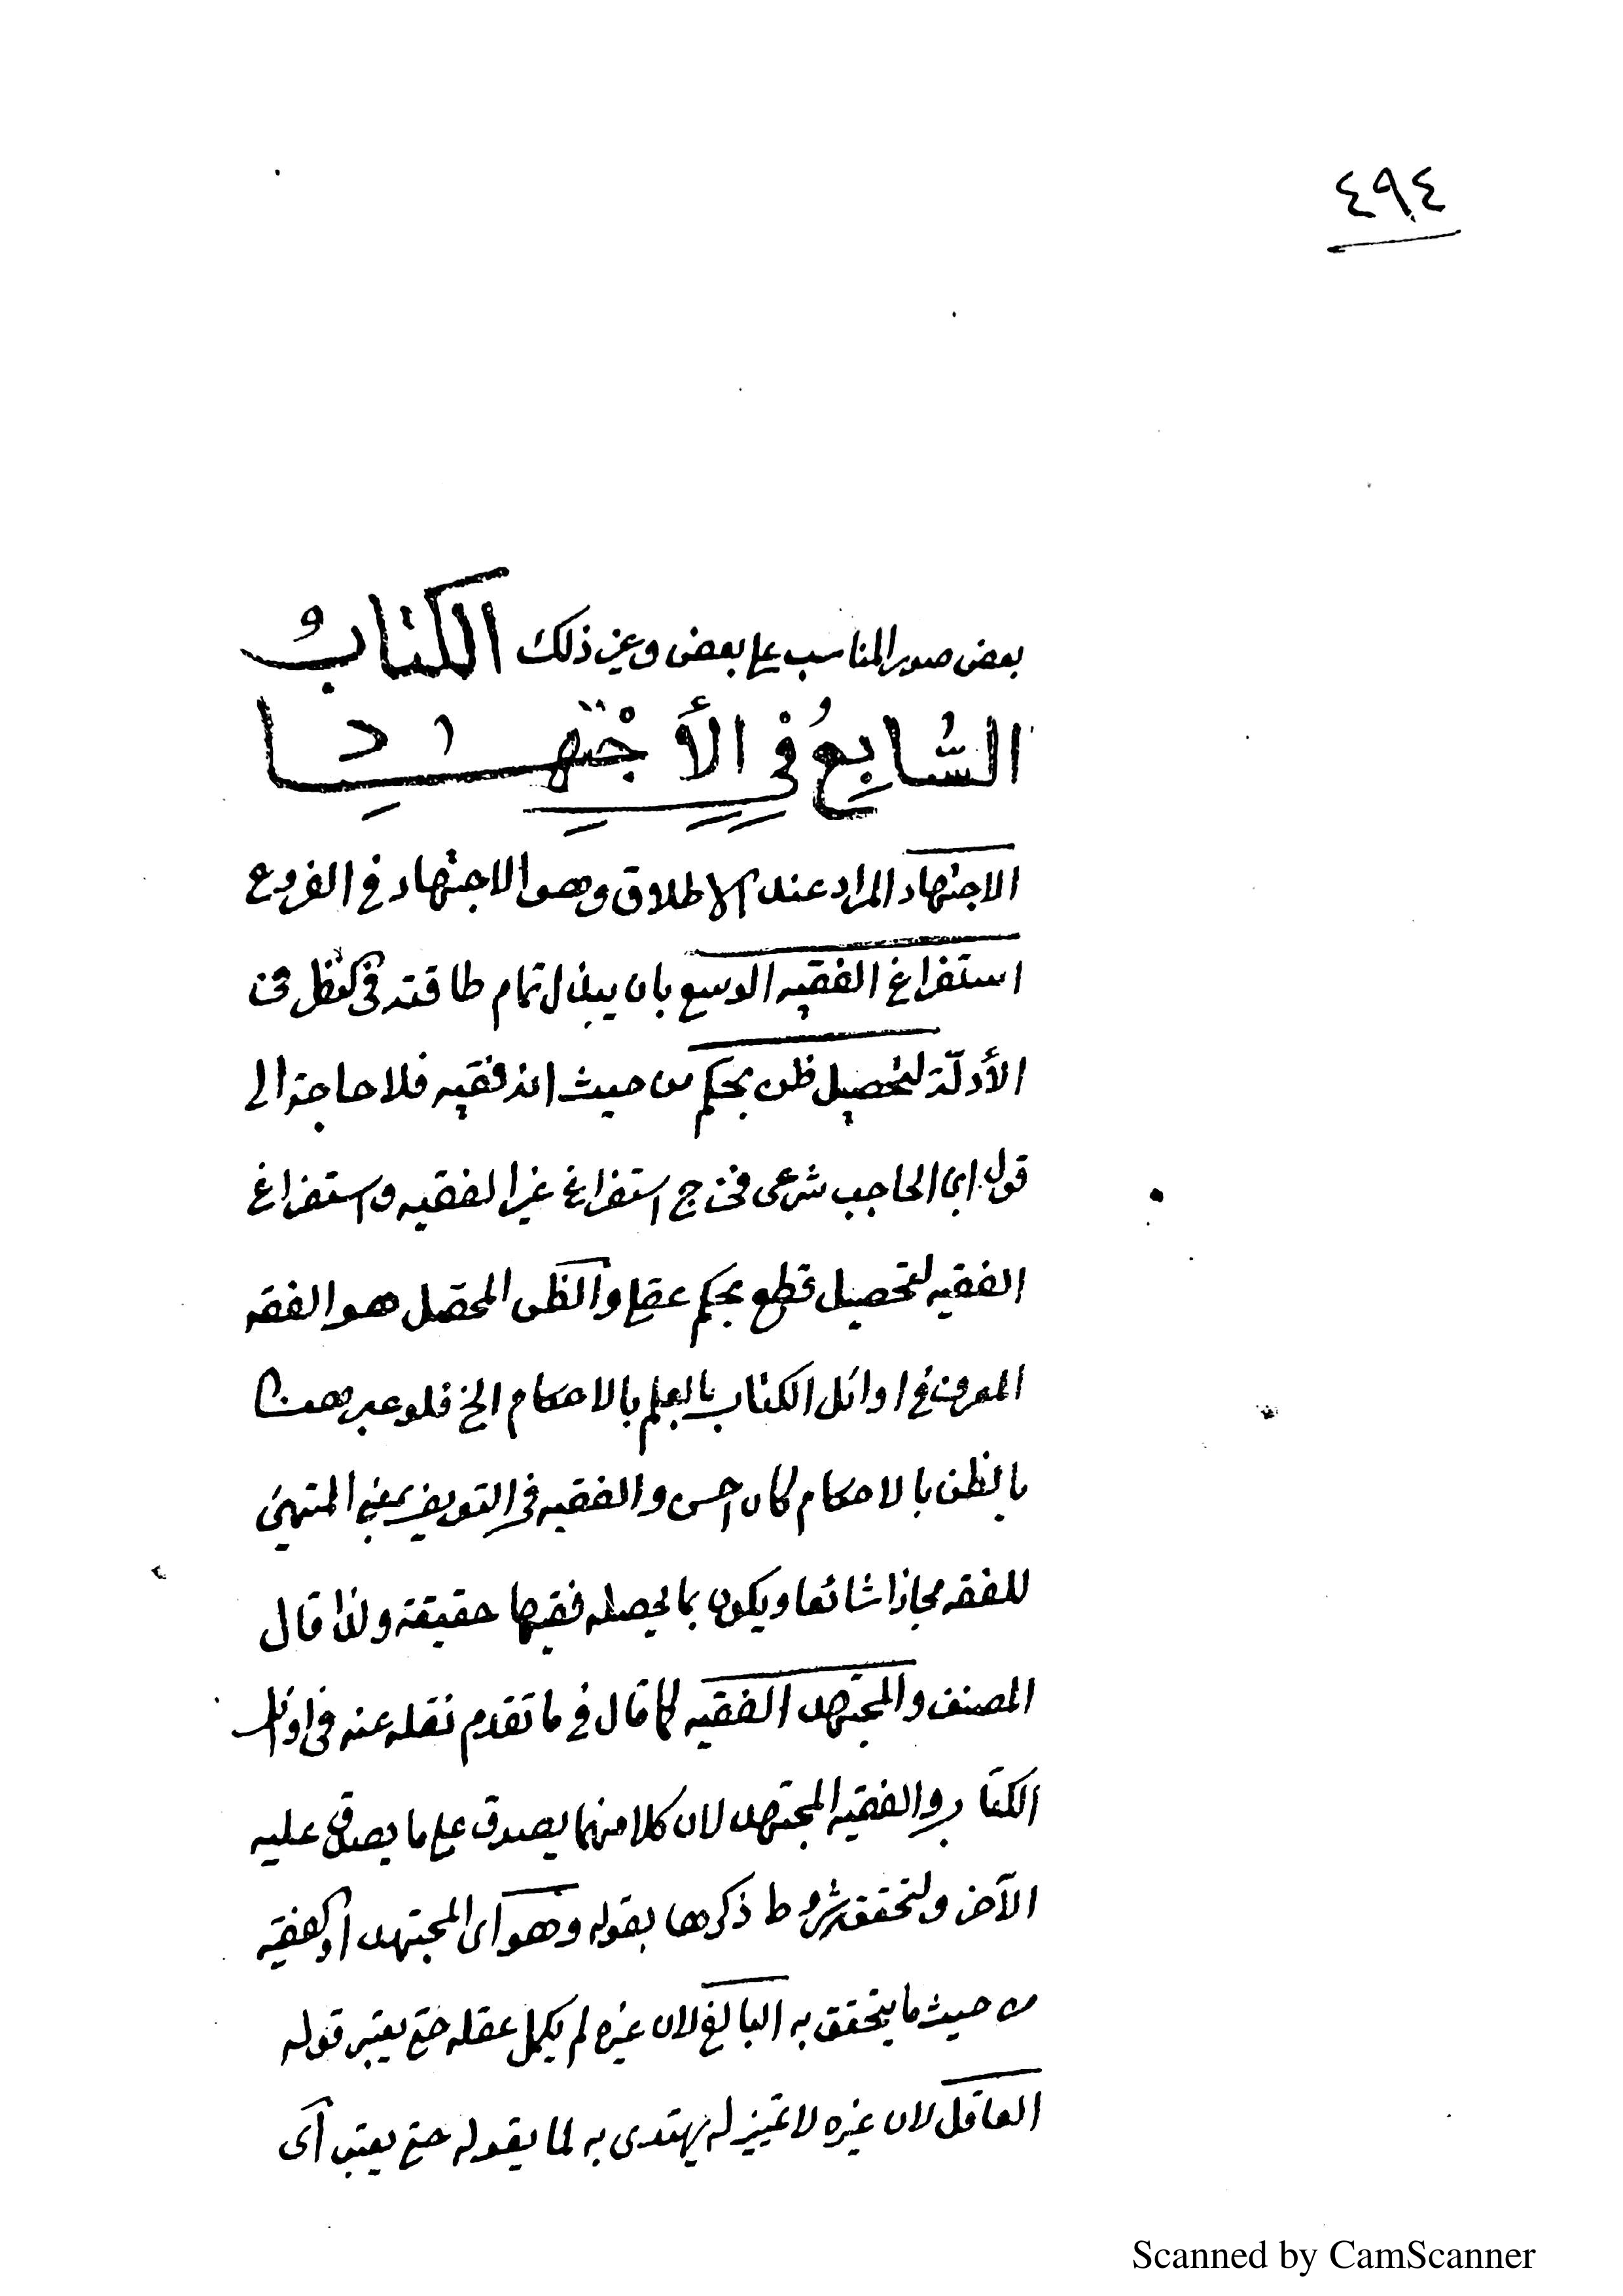 ٤٩٤
بعض صور المناسب على بعض وغير ذلك الكتابُ
السَّابِعُ فِي الأِجْتِهَادِ
الاجتهاد المراد عند الاطلاق وهو الاجتهاد في الفروع
استفراغ الفقيه الوسع بان يبذل تمام طاقته في النظر في
الأدلّة لتحصيل ظن بحكم من حيث انه فقيه فلا حاجة الى
قول ابن الحاجب شرعى فخرج استفراغ غير الفقيه واستفراغ
الفقيه لتحصيل قطع بحكم عقلي والظن المحصل هو الفقه
المعرف في اوائل الكتاب بالعلم بالاحكام الخ فلو عبر هنا
بالظن بالاحكام كان احسن والفقيه في التعريف بمعنى المتهيئ
للفقه مجازا شائعا ويكون بما يحصله فقيها حقيقة ولذا قال
المصنف والمجتهد الفقيه كما قال في ما تقدم نقله عنه في اوائل
الكتاب والفقيه المجتهد لان كلا منهما يصدق على ما يصدق عليه
الآخر ولتحقق شروط ذكرها بقوله وهو اى المجتهد او الفقيه
من حيث ما يتحقق به البالغ لان غيره لم يكمل عقله حتى يعتبر قوله
العاقل لان غيره لا تمييز له يهتدى به لما يقوله حتى يعتبر اى
Scanned by CamScanner